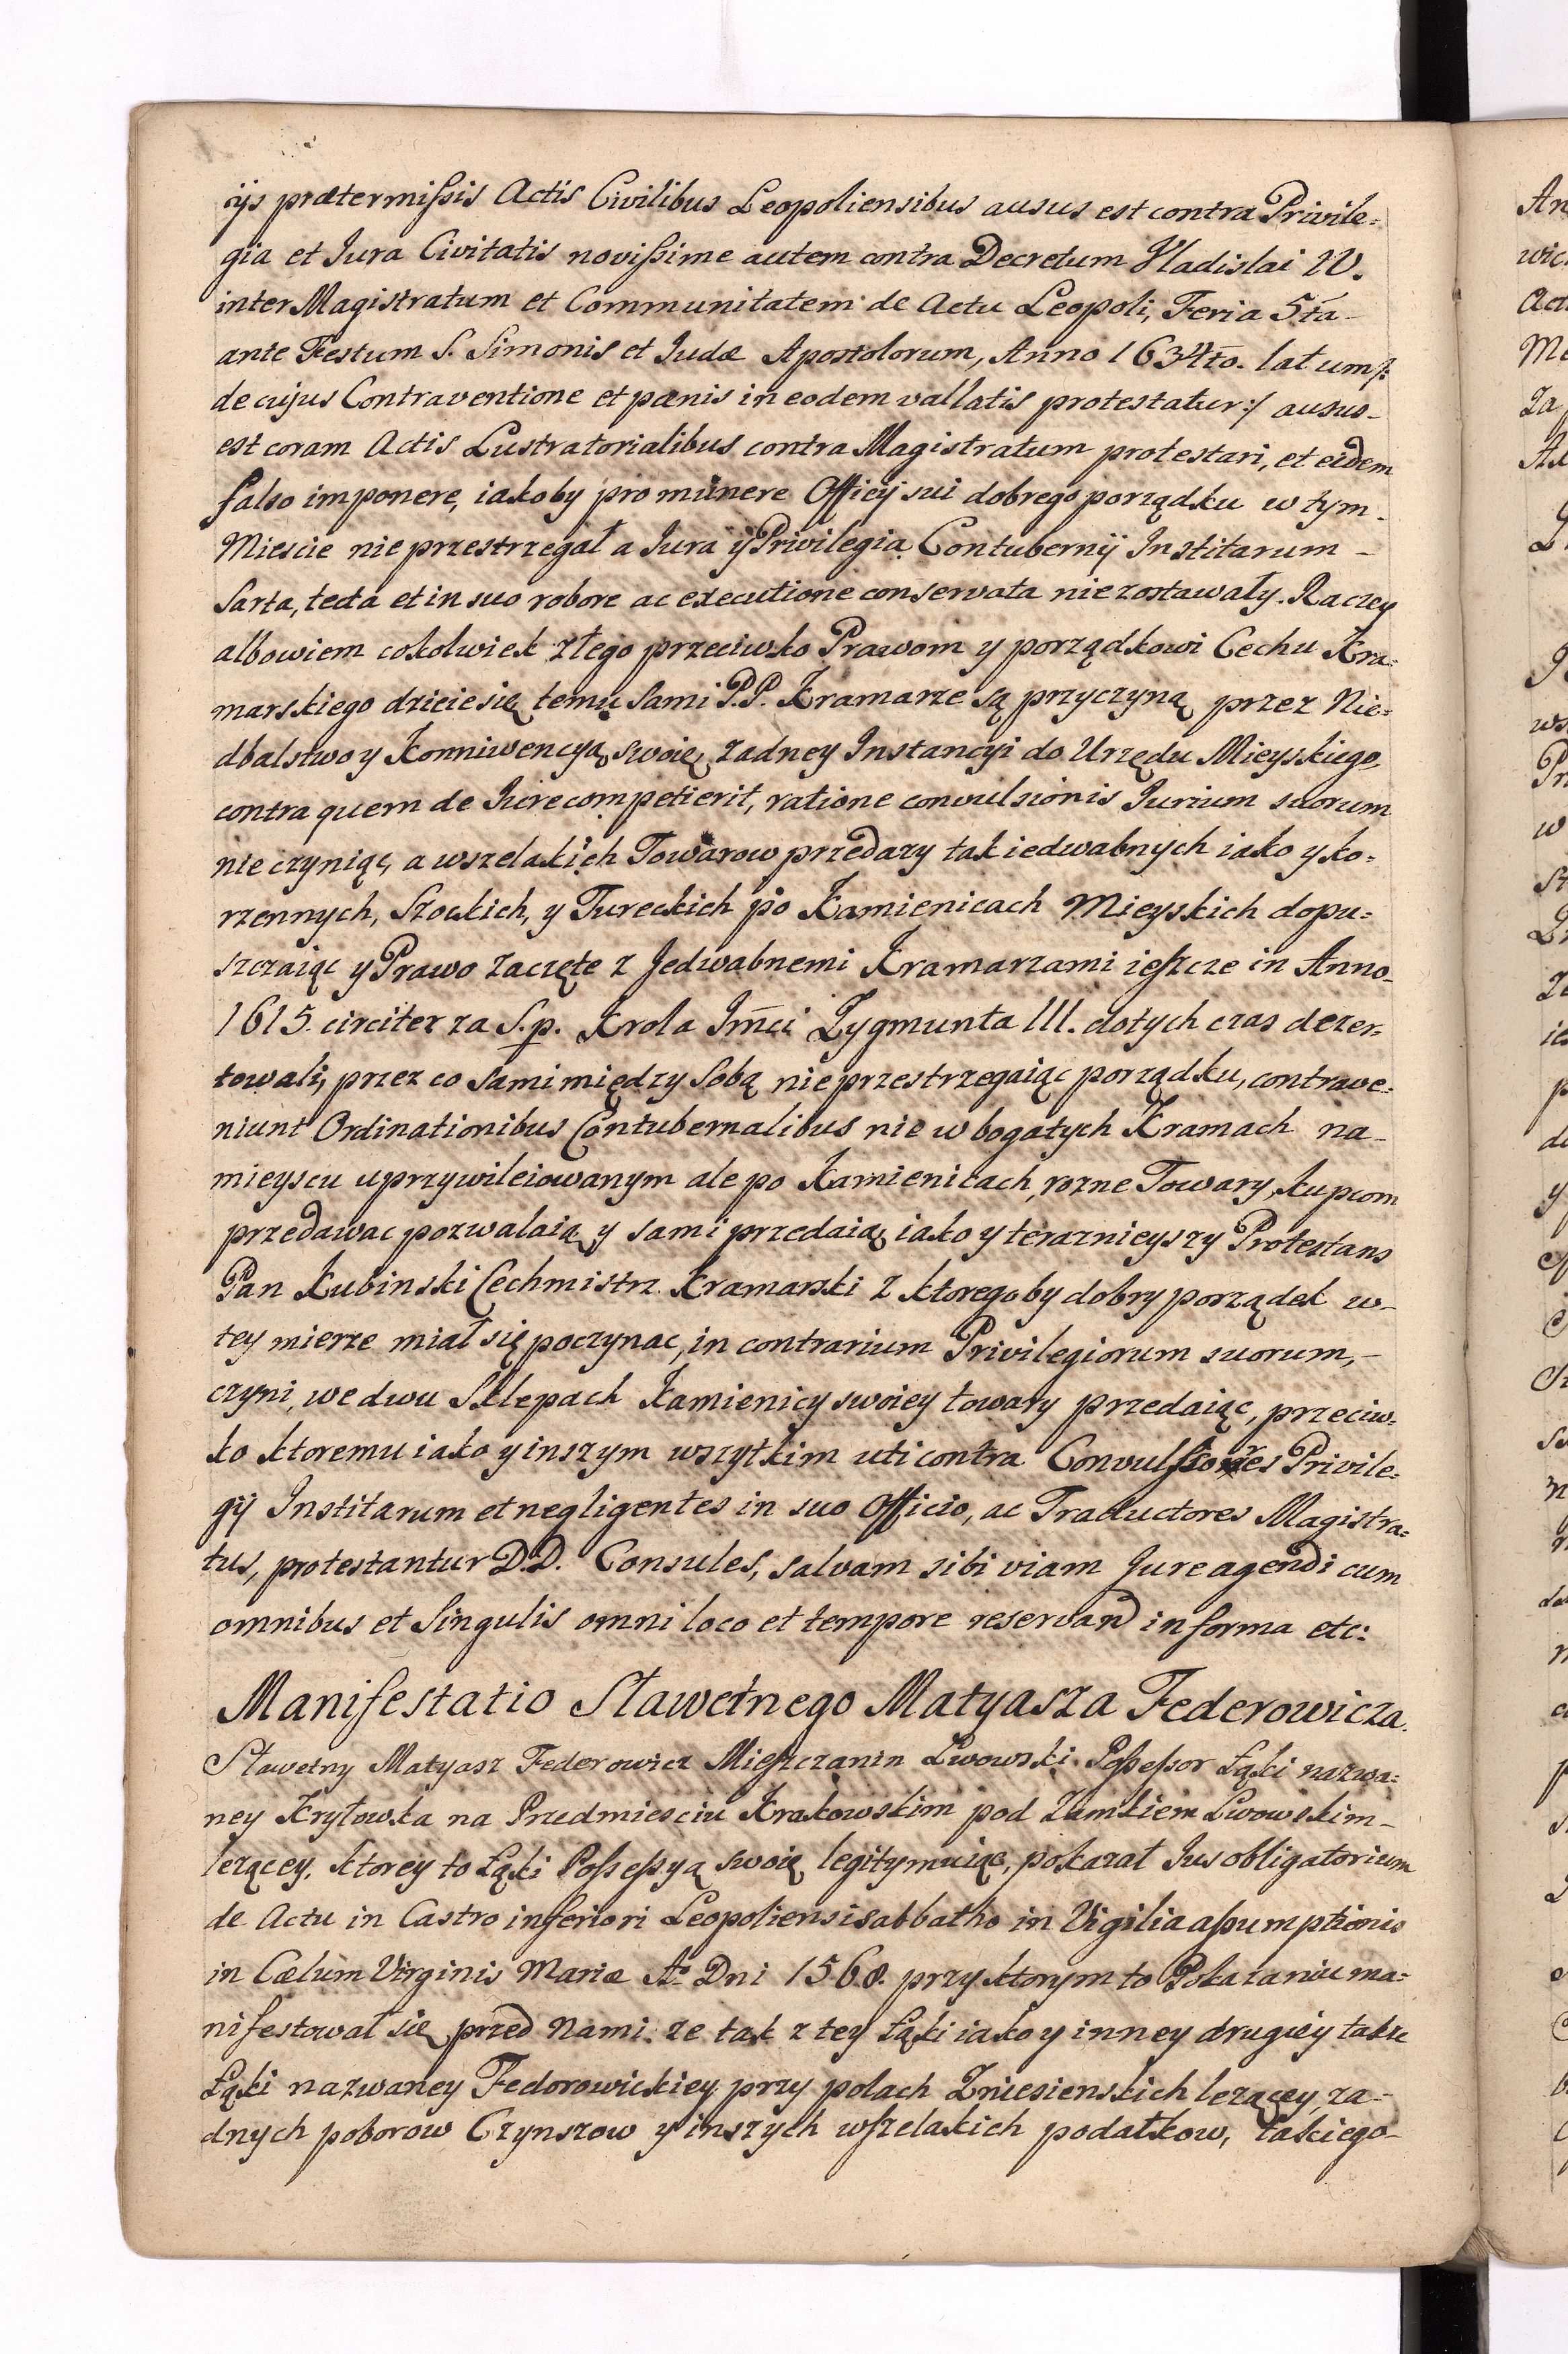 ijs prætermißis Actis Civilibus Leopoliensibus ausus est contra Privile=
gia et Jura Civitatis novißime autem contra Decretum Vladislai IV.
inter Magistratum et Communitatem de Actu Leopoli, Feria 5ta-
ante Festum S. Simonis et Judæ Apostolorum, Anno 1634to. latum /:
de cujus Contraventione et pœnis in eodem vallatis protestatur :/ ausus-
est coram Actis Lustratorialibus contra Magistratum protestari, et eidem
falso imponere, iakoby pro munere Officij sui dobrego porządku w tym-
Miescie nie przestrzegał a Jura ÿ Privilegia Contubernij Institarum-
Sarta, tecta et in suo robore ac executione conservata nie zostawały. Raczey
albowiem cokolwiek złego przeciwko Prawom y porządkowi Cechu Kra=
marskiego dzieie się temu sami P.P. Kramarze są przyczyną przez Nie=
dbalstwo y Konniwencyą swoię żadney Instancyi do Urzędu Mieyskiego,
contra quem de Jure competierit, ratione convulsionis Jurium suorum
nie czyniąc, a wszelakich Towarow przedaży tak iedwabnych iako y ko=
rzennych, Szockich, y Tureckich po Kamienicach Mieyskich dopu=
szczaiąc y Prawo zaczęte z Jedwabnemi Kramarzami ieszcze in Anno-
1615. circiter za S.p. Krola Jmci Zygmunta III. dotych czas dezer=
towali, przez co sami między sobą nie przestrzegaiąc porządku, contrave=
niunt Ordinationibus Contubernalibus nie w bogatych Kramach na-
mieyscu uprzywileiowanym ale po Kamienicach, rozne Towary, kupcom
przedawac pozwalaią y sami przedaią iako y terazniejszy Protestans
Pan Kubinski Cechmistrz Kramarski z ktorego by dobry porządek w-
tey mierze miał się poczynac, in contrarium Privilegiorum suorum,-
czyni, we dwu Sklepach Kamienicy swoiey towary przedaiąc, przeciw=
ko ktoremu iako y inszym wszytkim uti contra Convulsores Privile=
gij Institarum et negligentes in suo Officio, ac Traductores Magistra=
tus, protestantur D.D. Consules, salvam sibi viam Jure agendi cum
omnibus et Singulis omni loco et tempore reservand in forma etc:
Manifestatio Sławetnego Matyasza Federowicza.
Sławetny Matyasz Federowicz Mieszczanin Lwowski Poßeßor Łąki nazwa=
ney Kryłowka na Przedmiesciu Krakowskim pod Zamkiem Lwowskim-
leżącey, ktorey to Łąki Poßeßyą swoię legitymuiąc, pokazał Jus obligatorium
de Actu in Castro inferiori Leopoliensi sabbatho in Vigilia aßumptionis
in Cælum Virginis Mariæ Ao Dni 1568. przy ktorym to Pokazaniu ma=
nifestował się przed Nami. że tak z tey Łąki iako y inney drugiey także
Łąki nazwaney Fedorowickiey przy polach Zniesienskich leżącey, ża-
dnych poborow Czynszow y inszych wszelakich podatkow, takiego-